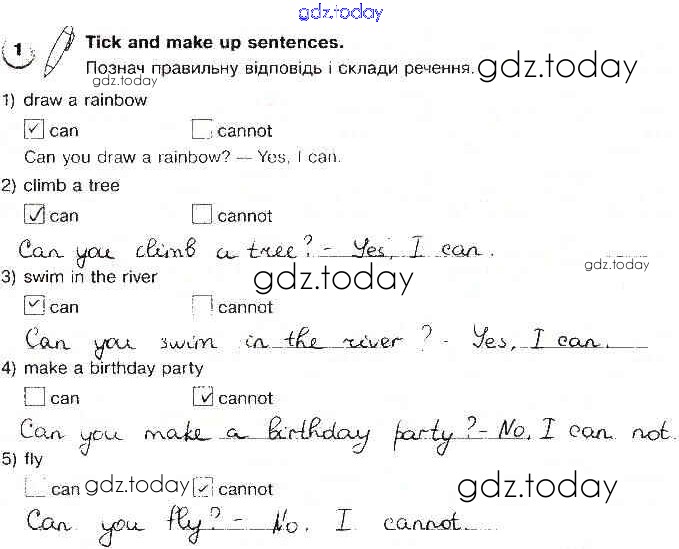 gdz.today
1 Tick and make up sentences.
Познач правильну відповідь і склади речення. gdz.today
gdz.today
1) draw a rainbow
✓ can cannot
Can you draw a rainbow? — Yes, I can.
2) climb a tree
✓ can cannot
Can you climb a tree? - Yes, I can.
gdz.today
3) swim in the river gdz.today
✓ can cannot
Can you swim in the river? - Yes, I can.
4) make a birthday party
can ✓ cannot
Can you make a birthday party? - No, I can not.
5) fly
can gdz.today ✓ cannot gdz.today
Can you fly? - No. I cannot.